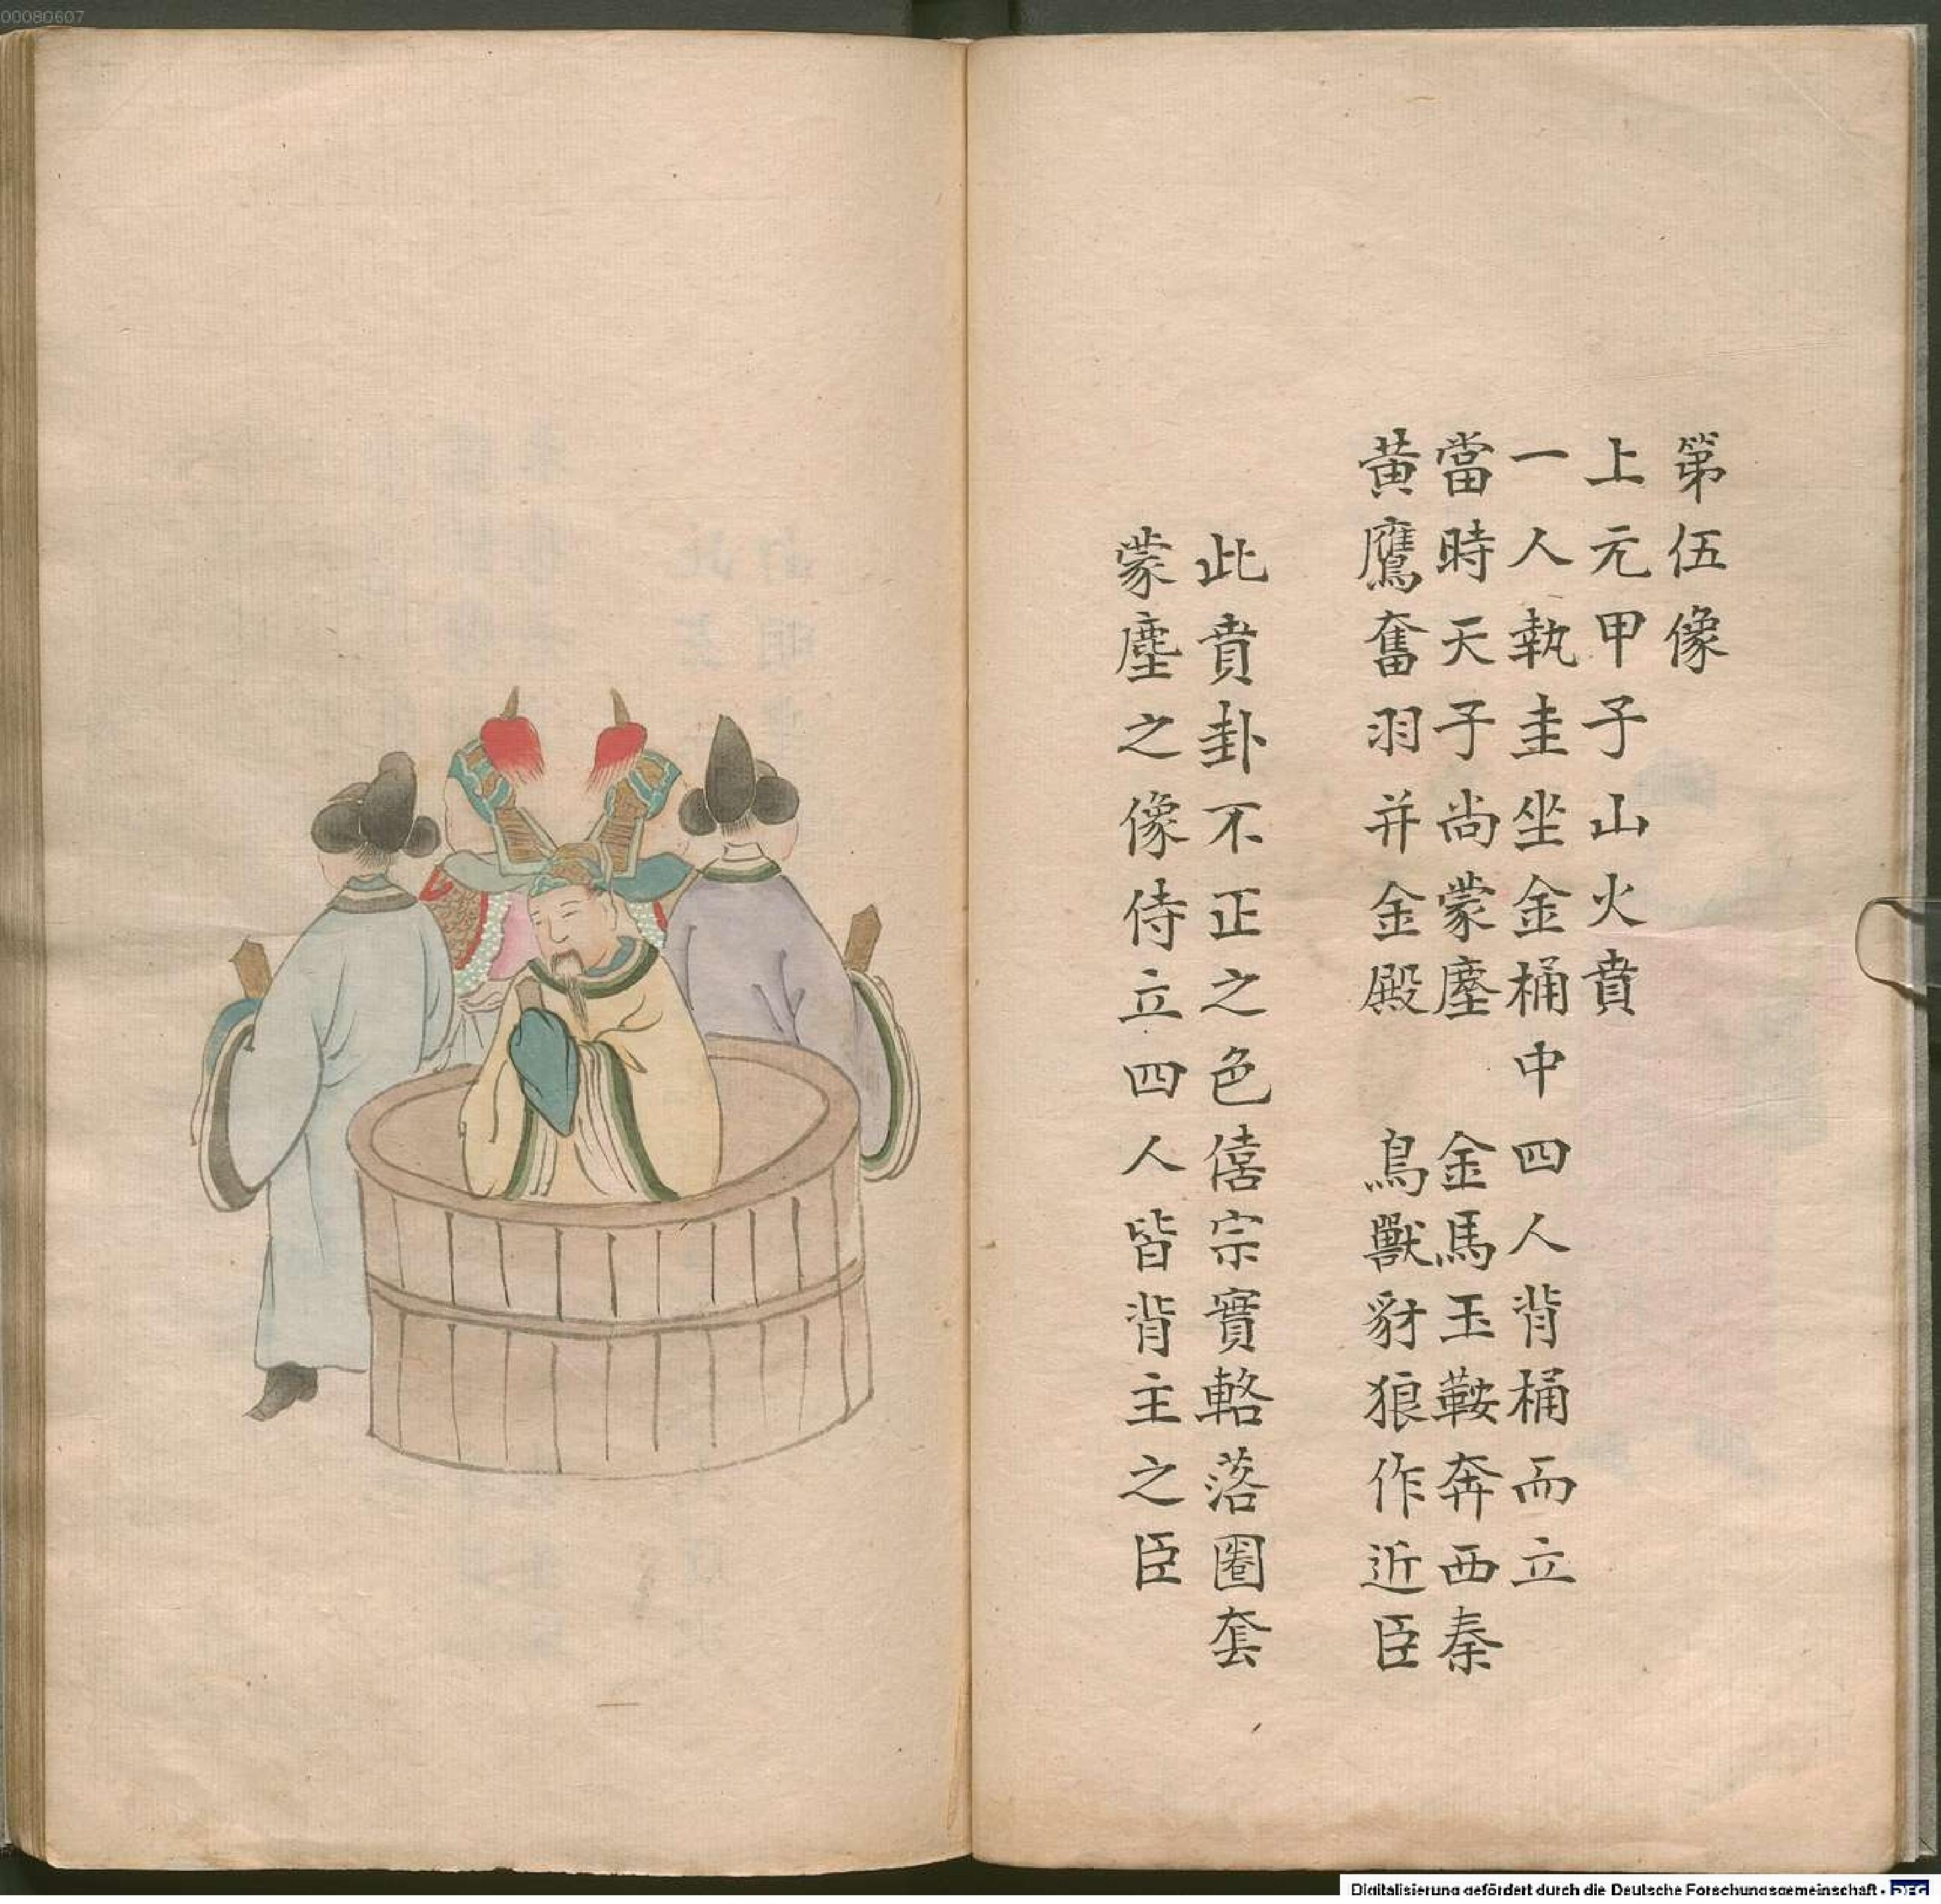 00080607
第伍像
上元甲子山火賁
一人執圭坐金桶中四人背桶而立
當時天子尚蒙塵　金馬玉鞍奔西秦
黃鷹奮羽并金殿　鳥獸豺狼作近臣
此賁卦不正之色僖宗實輅落圈套
蒙塵之像侍立四人皆背主之臣
Digitalisierung gefördert durch die Deutsche Forschungsgemeinschaft - DFG